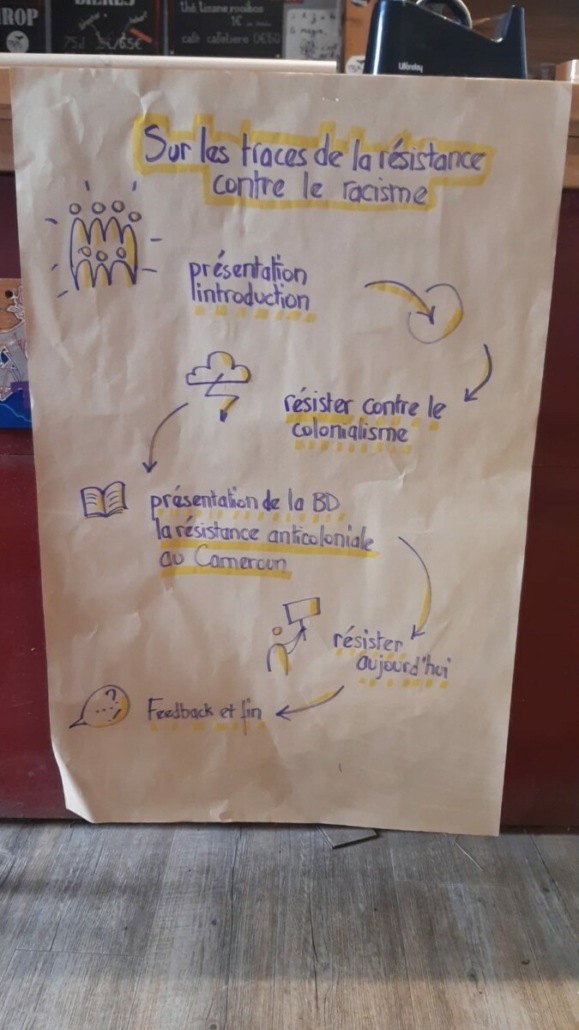 BIÈRES
ROP
75cl 5€/65€
thé tisane rooibos
1€
café cafetière 0€50
Sur les traces de la résistance
contre le racisme
présentation
introduction
résister contre le
colonialisme
présentation de la BD
la résistance anticoloniale
au Cameroun
résister
aujourd'hui
? ...
Feedback et fin